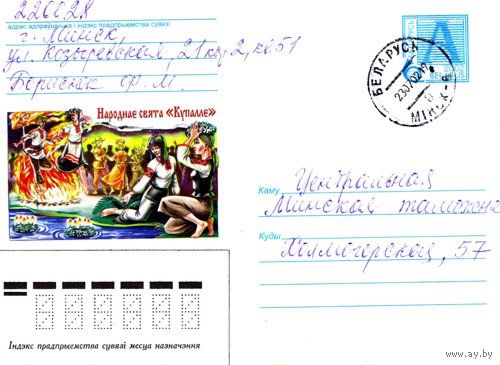 220028
адрас адпраўшчыка і індэкс прадпрыемства сувязі
г. Минск,
ул. Козыревская, 21 кор. 2, кв. 51
Борисюк Ф. М.
Народнае свята «Купалле»
А
БЕЛАРУСЬ
МІНСК
Каму Центральная
Минская таможня
Куды Холмогорская, 57
Індэкс прадпрыемства сувязі месца назначэння
www.ay.by